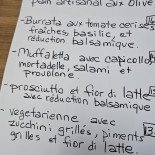 pain artisanal aux olive
- Burrata aux tomate cerises
fraîches, basilic, et
réduction balsamique.
- Muffaletta avec capicollo,
mortadelle, salami et
provolone
- prosciutto et fior di latte
avec réduction balsamique
- vegetarienne avec
zucchini grillés, piments
grillés et fior di latte.